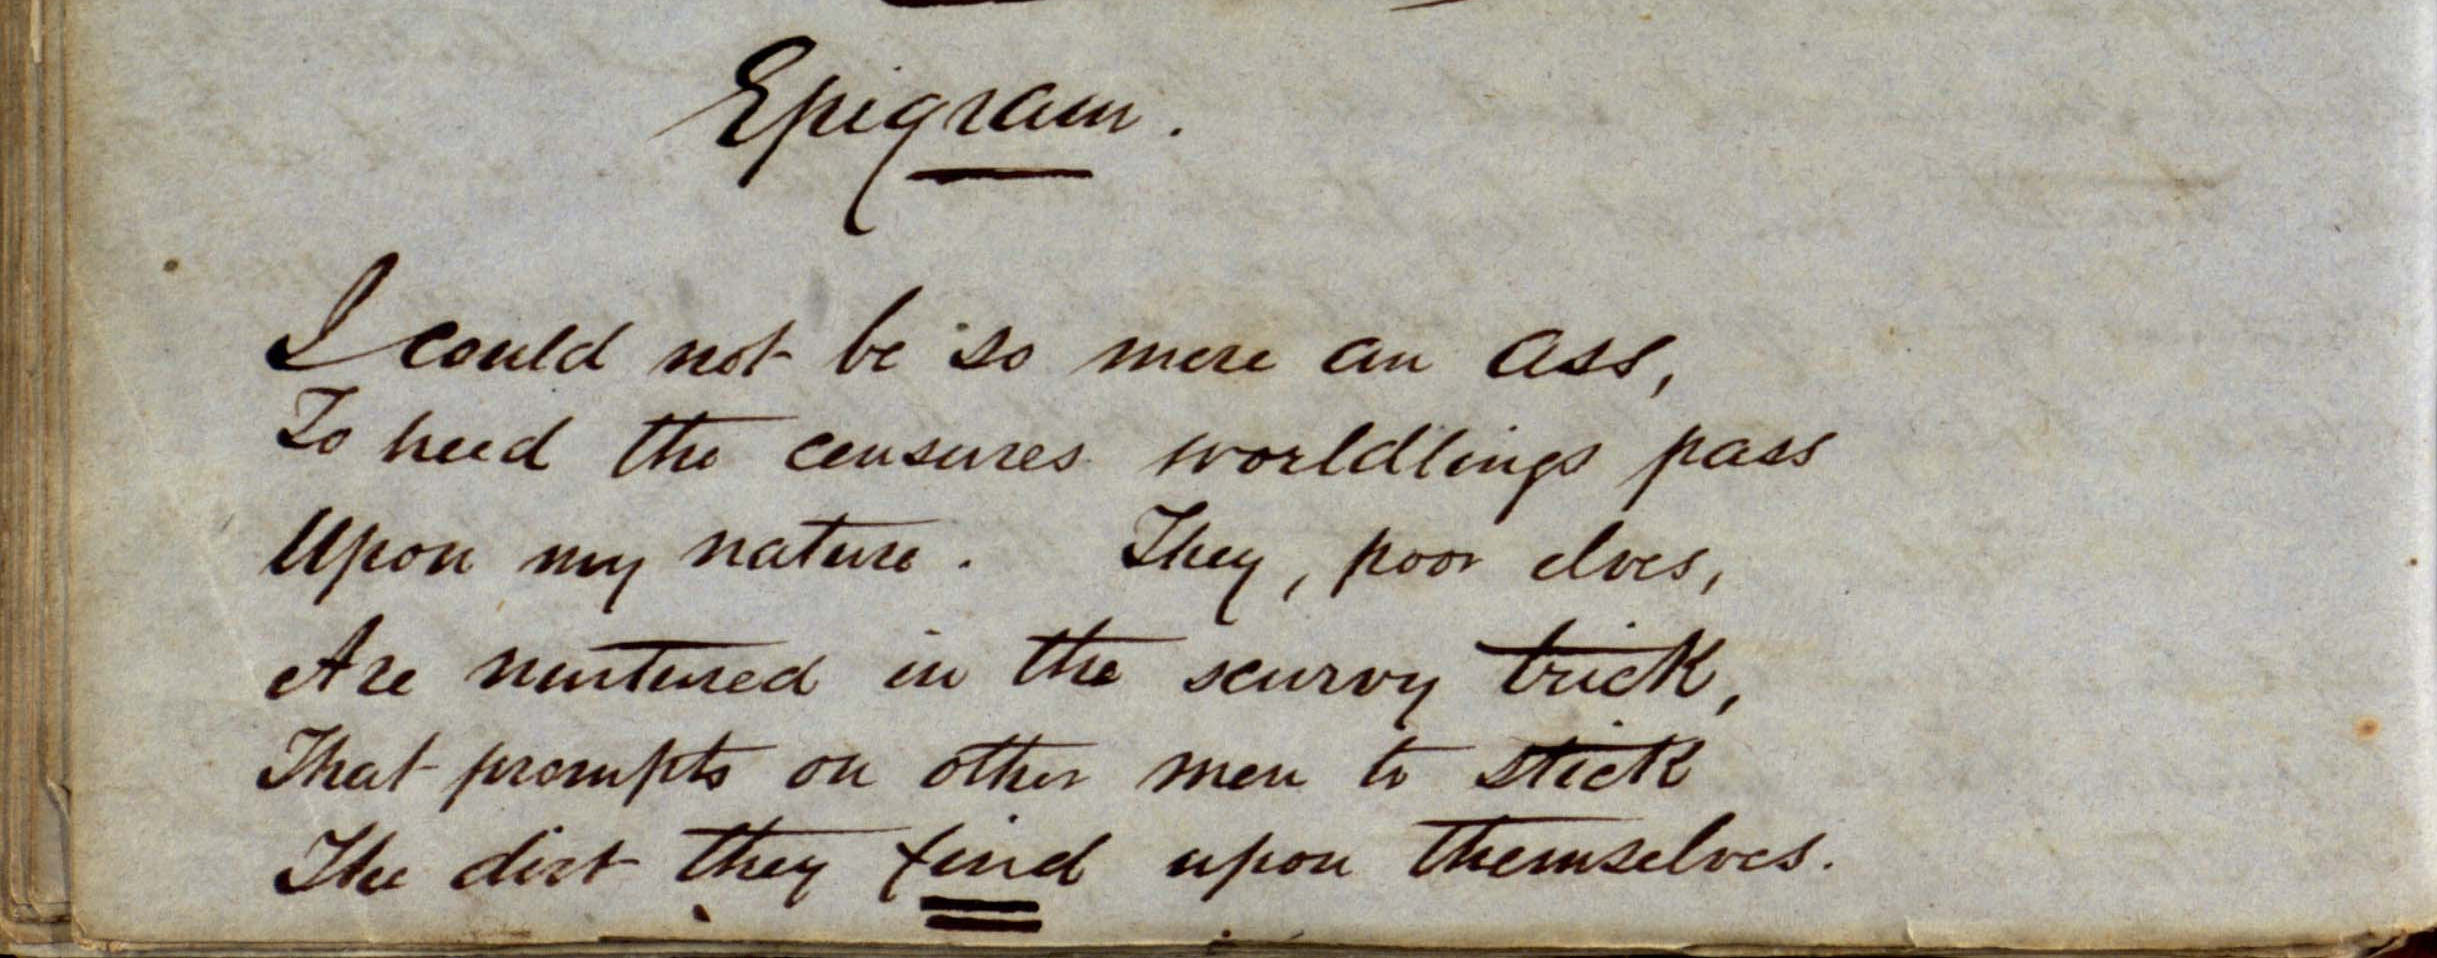 Epigram.
I could not be so mere an ass,
To heed the censures worldlings pass
Upon my nature. They, poor elves,
Are nurtured in the scurvy trick,
That prompts on other men to stick
The dirt they find upon themselves.